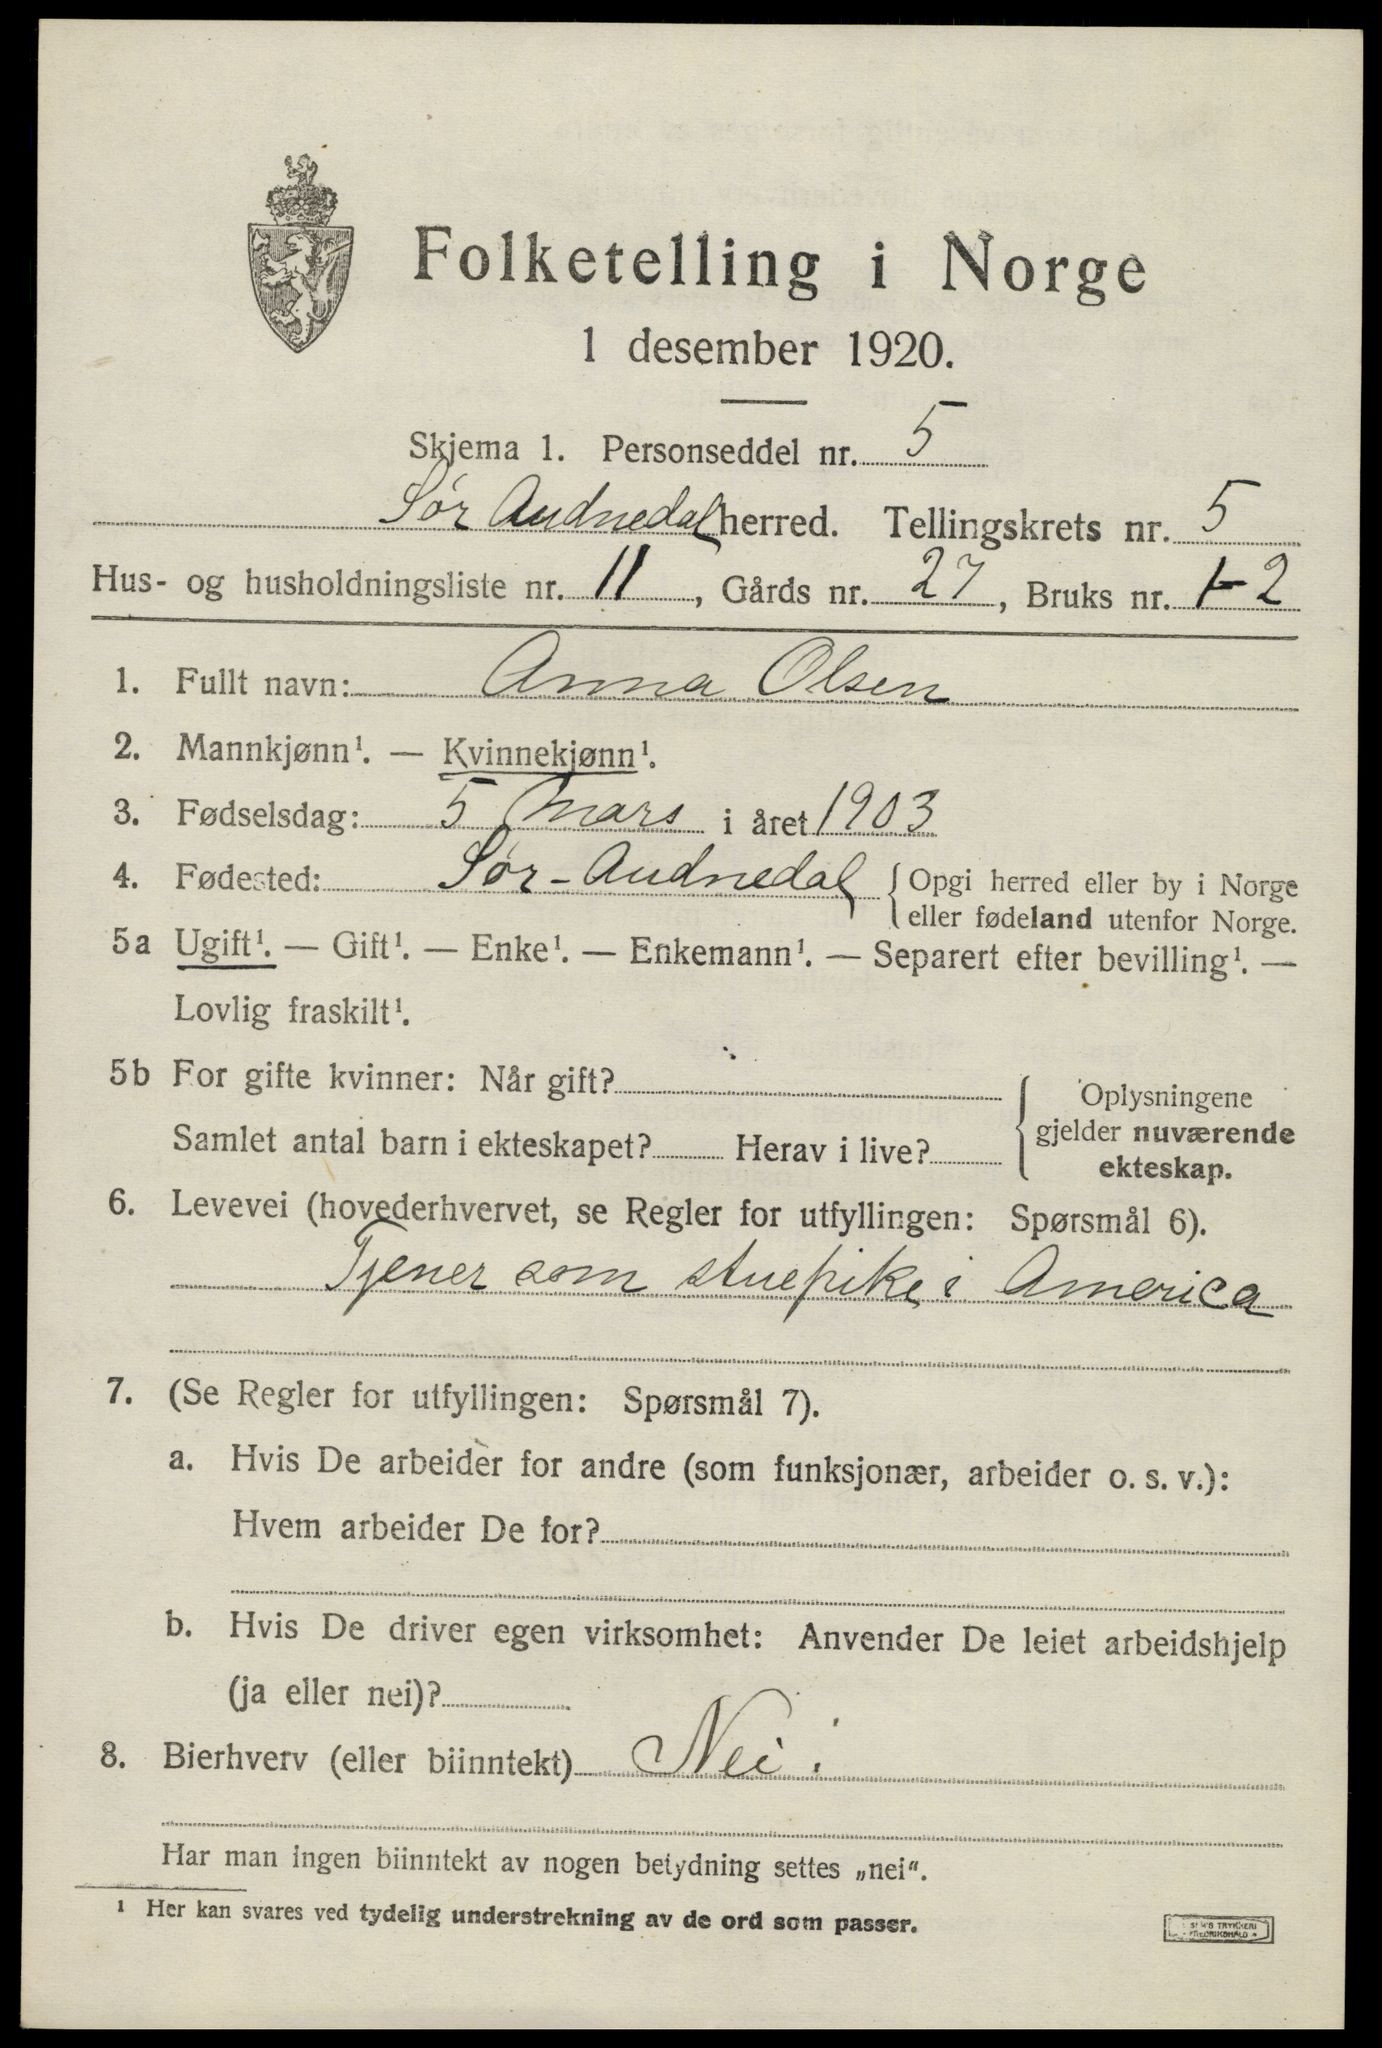 Folketelling i Norge
1 desember 1920.
Skjema 1. Personseddel nr. 5
Sør Audnedal herred. Tellingskrets nr. 5
Hus- og husholdningsliste nr. 11, Gårds nr. 27, Bruks nr. 1-2
1. Fullt navn: Anna Olsen
2. Mannkjønn¹. — Kvinnekjønn¹.
3. Fødselsdag: 5 Mars i året 1903
4. Fødested: Sør-Audnedal { Opgi herred eller by i Norge
eller fødeland utenfor Norge.
5a Ugift¹. — Gift¹. — Enke¹. — Enkemann¹. — Separert efter bevilling¹. —
Lovlig fraskilt¹.
5b For gifte kvinner: Når gift?
Samlet antal barn i ekteskapet? Herav i live?
{ Oplysningene
gjelder nuværende
ekteskap.
6. Levevei (hovederhvervet, se Regler for utfyllingen: Spørsmål 6).
Tjener som stuepike i America
7. (Se Regler for utfyllingen: Spørsmål 7).
a. Hvis De arbeider for andre (som funksjonær, arbeider o. s. v.):
Hvem arbeider De for?
b. Hvis De driver egen virksomhet: Anvender De leiet arbeidshjelp
(ja eller nei)?
8. Bierhverv (eller biinntekt) Nei
Har man ingen biinntekt av nogen betydning settes „nei“.
¹ Her kan svares ved tydelig understrekning av de ord som passer.
TRYKKERI
FREDRIKSHALD